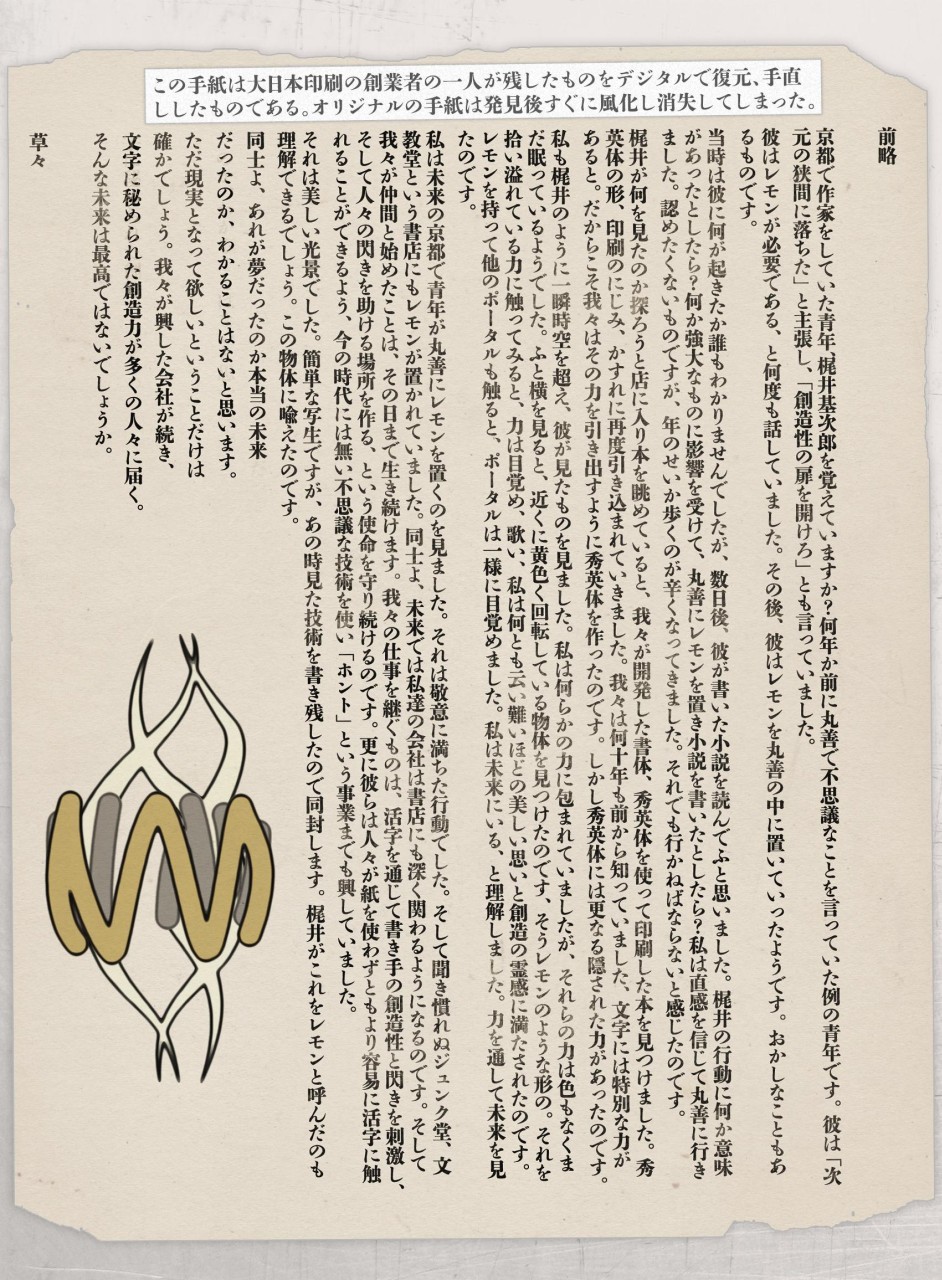 この手紙は大日本印刷の創業者の一人が残したものをデジタルで復元、手直
ししたものである。オリジナルの手紙は発見後すぐに風化し消失してしまった。
前略
京都で作家をしていた青年、梶井基次郎を覚えていますか？何年か前に丸善で不思議なことを言っていた例の青年です。彼は「次
元の狭間に落ちた」と主張し、「創造性の扉を開けろ」とも言っていました。
彼はレモンが必要である、と何度も話していました。その後、彼はレモンを丸善の中に置いていったようです。おかしなこともあ
るものです。
当時は彼に何が起きたか誰もわかりませんでしたが、数日後、彼が書いた小説を読んでふと思いました。梶井の行動に何か意味
があったとしたら？何か強大なものに影響を受けて、丸善にレモンを置き小説を書いたとしたら？私は直感を信じて丸善に行き
ました。認めたくないものですが、年のせいか歩くのが辛くなってきました。それでも行かねばならないと感じたのです。
梶井が何を見たのか探ろうと店に入り本を眺めていると、我々が開発した書体、秀英体を使って印刷した本を見つけました。秀
英体の形、印刷のにじみ、かすれに再度引き込まれていきました。我々は何十年も前から知っていました、文字には特別な力が
あると。だからこそ我々はその力を引き出すように秀英体を作ったのです。しかし秀英体には更なる隠された力があったのです。
私も梶井のように一瞬時空を超え、彼が見たものを見ました。私は何らかの力に包まれていましたが、それらの力は色もなくま
だ眠っているようでした。ふと横を見ると、近くに黄色く回転している物体を見つけたのです、そうレモンのような形の。それを
拾い溢れている力に触ってみると、力は目覚め、歌い、私は何とも云い難いほどの美しい思いと創造の霊感に満たされたのです。
レモンを持って他のポータルも触ると、ポータルは一様に目覚めました。私は未来にいる、と理解しました。力を通して未来を見
たのです。
私は未来の京都で青年が丸善にレモンを置くのを見ました。それは敬意に満ちた行動でした。そして聞き慣れぬジュンク堂、文
教堂という書店にもレモンが置かれていました。同士よ、未来では私達の会社は書店にも深く関わるようになるのです。そして
我々が仲間と始めたことは、その日まで生き続けます。我々の仕事を継ぐものは、活字を通じて書き手の創造性と閃きを刺激し、
そして人々の閃きを助ける場所を作る、という使命を守り続けるのです。更に彼らは人々が紙を使わずともより容易に活字に触
れることができるよう、今の時代には無い不思議な技術を使い「ホント」という事業までも興していました。
それは美しい光景でした。簡単な写生ですが、あの時見た技術を書き残したので同封します。梶井がこれをレモンと呼んだのも
理解できるでしょう。この物体に喩えたのです。
同士よ、あれが夢だったのか本当の未来
だったのか、わかることはないと思います。
ただ現実となって欲しいということだけは
確かでしょう。我々が興した会社が続き、
文字に秘められた創造力が多くの人々に届く。
そんな未来は最高ではないでしょうか。
草々